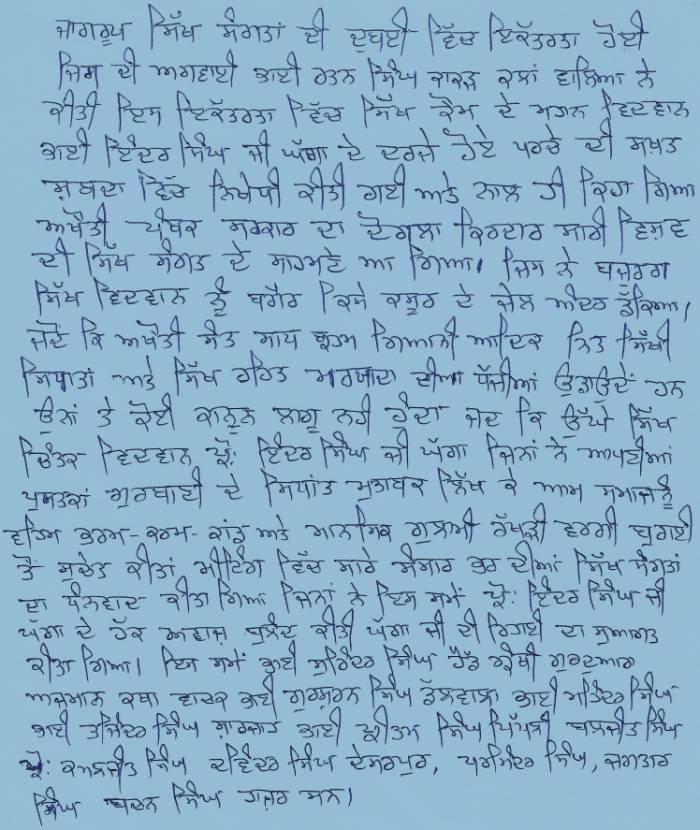 ਜਾਗਰੂਪ ਸਿੱਖ ਸੰਗਤਾਂ ਦੀ ਦੁਬਈ ਵਿੱਚ ਇਕੱਤਰਤਾ ਹੋਈ
ਜਿਸ ਦੀ ਅਗਵਾਈ ਭਾਈ ਰਤਨ ਸਿੰਘ ਕਾਕੜ ਕਲਾਂ ਵਾਲਿਆ ਨੇ
ਕੀਤੀ ਇਸ ਇਕੱਤਰਤਾ ਵਿੱਚ ਸਿੱਖ ਕੌਮ ਦੇ ਮਹਾਨ ਵਿਦਵਾਨ
ਭਾਈ ਇੰਦਰ ਸਿੰਘ ਜੀ ਘੱਗਾ ਦੇ ਦਰਜੇ ਹੋਏ ਪਰਚੇ ਦੀ ਸਖ਼ਤ
ਸ਼ਬਦਾ ਵਿੱਚ ਨਿਖੇਧੀ ਕੀਤੀ ਗਈ ਅਤੇ ਨਾਲ ਹੀ ਕਿਹਾ ਗਿਆ
ਅਖੌਤੀ ਪੰਥਕ ਸਰਕਾਰ ਦਾ ਦੋਗਲਾ ਕਿਰਦਾਰ ਸਾਰੀ ਵਿਸ਼ਵ
ਦੀ ਸਿੱਖ ਸੰਗਤ ਦੇ ਸਾਹਮਣੇ ਆ ਗਿਆ। ਜਿਸ ਨੇ ਬਜ਼ੁਰਗ
ਸਿੱਖ ਵਿਦਵਾਨ ਨੂੰ ਬਗੈਰ ਕਿਸੇ ਕਸੂਰ ਦੇ ਜੇਲ ਅੰਦਰ ਡੱਕਿਆ।
ਜਦੋਂ ਕਿ ਅਖੌਤੀ ਸੰਤ ਸਾਧ ਬ੍ਰਹਮ ਗਿਆਨੀ ਆਦਿਕ ਨਿਤ ਸਿੱਖੀ
ਸਿਧਾਤਾਂ ਅਤੇ ਸਿੱਖ ਰਹਿਤ ਮਰਯਾਦਾ ਦੀਆ ਧੱਜੀਆਂ ਉਡਾਉਂਦੇ ਹਨ
ਉਨਾਂ ਤੇ ਕੋਈ ਕਾਨੂੰਨ ਲਾਗੂ ਨਹੀ ਹੁੰਦਾ ਜਦ ਕਿ ਉੱਘੇ ਸਿੱਖ
ਚਿੰਤਕ ਵਿਦਵਾਨ ਪ੍ਰੋ: ਇੰਦਰ ਸਿੰਘ ਜੀ ਘੱਗਾ ਜਿਨਾਂ ਨੇ ਆਪਣੀਆਂ
ਪੁਸਤਕਾਂ ਗੁਰਬਾਣੀ ਦੇ ਸਿਧਾਂਤ ਮੁਤਾਬਕ ਲਿੱਖ ਕੇ ਆਮ ਸਮਾਜ ਨੂੰ
ਵਹਿਮ ਭਰਮ-ਕਰਮ-ਕਾਂਡ ਅਤੇ ਮਾਨਸਿਕ ਗੁਲਾਮੀ ਰੱਖੜੀ ਵਰਗੀ ਬੁਰਾਈ
ਤੋਂ ਸੁਚੇਤ ਕੀਤਾਂ ਮੀਟਿੰਗ ਵਿੱਚ ਸਾਰੇ ਸੰਸਾਰ ਭਰ ਦੀਆਂ ਸਿੱਖ ਸੰਗਤਾਂ
ਦਾ ਧੰਨਵਾਦ ਕੀਤਾ ਗਿਆ ਜਿਨਾਂ ਨੇ ਇਸ ਸਮੇਂ ਪ੍ਰੋ: ਇੰਦਰ ਸਿੰਘ ਜੀ
ਘੱਗਾ ਦੇ ਹੱਕ ਅਵਾਜ਼ ਬੁਲੰਦ ਕੀਤੀ ਘੱਗਾ ਜੀ ਦੀ ਰਿਹਾਈ ਦਾ ਸੁਆਗਤ
ਕੀਤਾ ਗਿਆ। ਇਸ ਸਮੇਂ ਭਾਈ ਸੁਰਿੰਦਰ ਸਿੰਘ ਹੈੱਡ ਗ੍ਰੰਥੀ ਗੁਰਦੁਆਰਾ
ਅਜਮਾਨ ਕਥਾ ਵਾਚਕ ਭਾਈ ਗੁਰਸ਼ਰਨ ਸਿੰਘ ਡੱਲੇਵਾਲਾ ਭਾਈ ਮਹਿੰਦਰ ਸਿੰਘ
ਭਾਈ ਤਜਿੰਦਰ ਸਿੰਘ ਸ਼ਾਰਜਾਹ ਭਾਈ ਪ੍ਰੀਤਮ ਸਿੰਘ ਪਿੱਪਲੀ ਬਲਜੀਤ ਸਿੰਘ
ਪ੍ਰੋ: ਕਮਲਜੀਤ ਸਿੰਘ ਦਵਿੰਦਰ ਸਿੰਘ ਦੇਸਰਪੁਰ, ਪਰਮਿੰਦਰ ਸਿੰਘ, ਜਗਤਾਰ
ਸਿੰਘ ਬਚਨ ਸਿੰਘ ਹਾਜ਼ਰ ਸਨ।